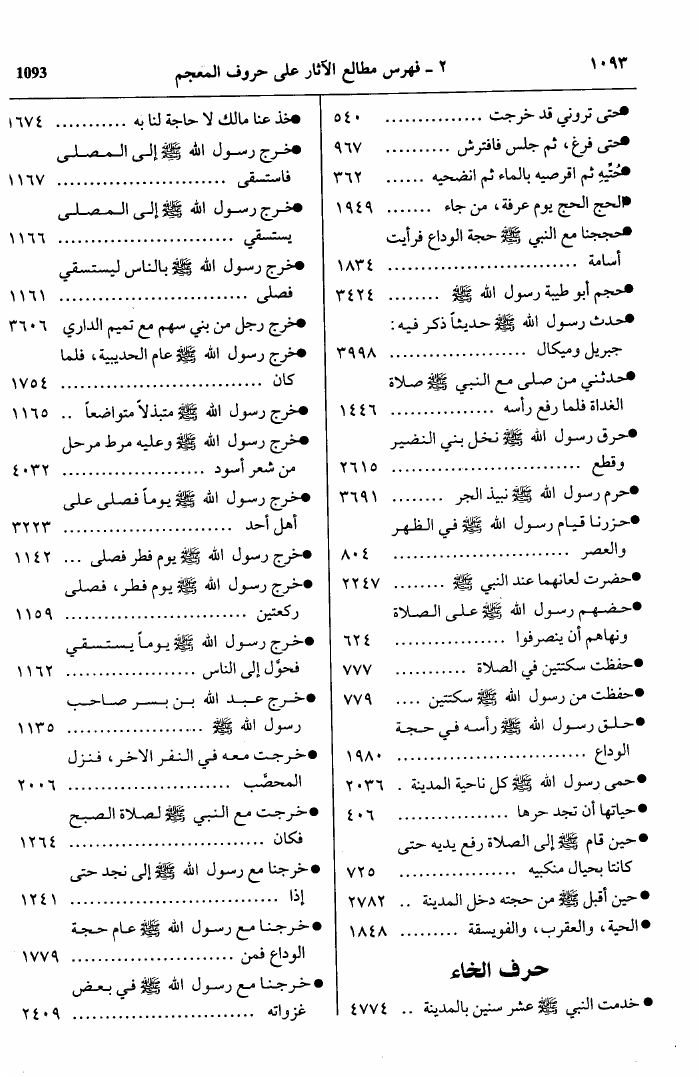 ١٠٩٣
٢ ـ فهرس مطالع الآثار على حروف المعجم
1093
●حتى تروني قد خرجت ............... ٥٤٠
●حتى فرغ، ثم جلس فافترش .......... ٩٦٧
●حُتِّيهِ ثم اقرصيه بالماء ثم انضحيه ...... ٣٦٢
●الحج الحج يوم عرفة، من جاء ....... ١٩٤٩
●حججنا مع النبي ﷺ حجة الوداع فرأيت
أسامة ............................ ١٨٣٤
●حجم أبو طيبة رسول الله ﷺ ........ ٣٤٢٤
●حدث رسول الله ﷺ حديثاً ذكر فيه:
جبريل وميكال .................... ٣٩٩٨
●حدثني من صلى مع النبي ﷺ صلاة
الغداة فلما رفع رأسه ............... ١٤٤٦
●حرق رسول الله ﷺ نخل بني النضير
وقطع ............................ ٢٦١٥
●حرم رسول الله ﷺ نبيذ الجر ........ ٣٦٩١
●حزرنا قيام رسول الله ﷺ في الظهر
والعصر .......................... ٨٠٤
●حضرت لعانهما عند النبي ﷺ ........ ٢٢٤٧
●حضهم رسول الله ﷺ على الصلاة
ونهاهم أن ينصرفوا ................ ٦٢٤
●حفظت سكتتين في الصلاة ........... ٧٧٧
●حفظت من رسول الله ﷺ سكتتين .... ٧٧٩
●حلق رسول الله ﷺ رأسه في حجة
الوداع ............................ ١٩٨٠
●حمى رسول الله ﷺ كل ناحية المدينة . ٢٠٣٦
●حياتها أن تجد حرها ................ ٤٠٦
●حين قام ﷺ إلى الصلاة رفع يديه حتى
كانتا بحيال منكبيه ................. ٧٢٥
●حين أقبل ﷺ من حجته دخل المدينة .. ٢٧٨٢
●الحية، والعقرب، والفويسقة ......... ١٨٤٨
حرف الخاء
●خدمت النبي ﷺ عشر سنين بالمدينة .. ٤٧٧٤
●خذ عنا مالك لا حاجة لنا به ........... ١٦٧٤
●خرج رسول الله ﷺ إلى المصلى
فاستسقى ......................... ١١٦٧
●خرج رسول الله ﷺ إلى المصلى
يستسقي .......................... ١١٦٦
●خرج رسول الله ﷺ بالناس ليستسقي
فصلى ............................ ١١٦١
●خرج رجل من بني سهم مع تميم الداري ٣٦٠٦
●خرج رسول الله ﷺ عام الحديبية، فلما
كان .............................. ١٧٥٤
●خرج رسول الله ﷺ متبذلاً متواضعاً .. ١١٦٥
●خرج رسول الله ﷺ وعليه مرط مرحل
من شعر أسود ..................... ٤٠٣٢
●خرج رسول الله ﷺ يوماً فصلى على
أهل أحد ......................... ٣٢٢٣
●خرج رسول الله ﷺ يوم فطر فصلى ... ١١٤٢
●خرج رسول الله ﷺ يوم فطر، فصلى
ركعتين ........................... ١١٥٩
●خرج رسول الله ﷺ يوماً يستسقي
فحوَّل إلى الناس ................... ١١٦٢
●خرج عبد الله بن بسر صاحب
رسول الله ﷺ .................... ١١٣٥
●خرجت معه في النفر الآخر، فنزل
المحصَّب ........................ ٢٠٠٦
●خرجت مع النبي ﷺ لصلاة الصبح
فكان ............................. ١٢٦٤
●خرجنا مع رسول الله ﷺ إلى نجد حتى
إذا ............................... ١٢٤١
●خرجنا مع رسول الله ﷺ عام حجة
الوداع فمن ........................ ١٧٧٩
●خرجنا مع رسول الله ﷺ في بعض
غزواته ........................... ٢٤٠٩